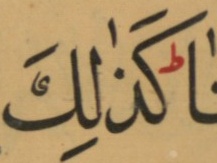 ناۘ كَذٰلِكَ